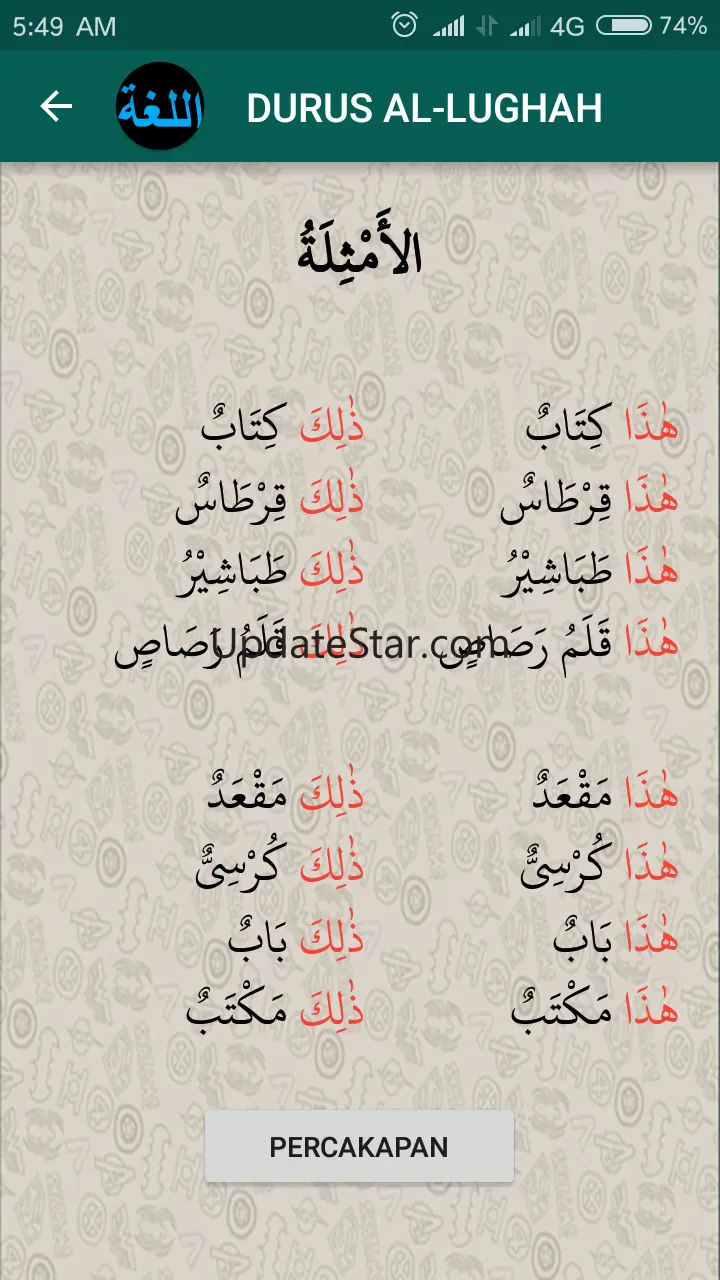 5:49 AM 4G 74%
اللغة DURUS AL-LUGHAH
الأَمْثِلَةُ
هٰذَا كِتَابٌ ذٰلِكَ كِتَابٌ
هٰذَا قِرْطَاسٌ ذٰلِكَ قِرْطَاسٌ
هٰذَا طَبَاشِيْرُ ذٰلِكَ طَبَاشِيْرُ
هٰذَا قَلَمُ رَصَاصٍ ذٰلِكَ قَلَمُ رَصَاصٍ
UpdateStar.com
هٰذَا مَقْعَدٌ ذٰلِكَ مَقْعَدٌ
هٰذَا كُرْسِىٌّ ذٰلِكَ كُرْسِىٌّ
هٰذَا بَابٌ ذٰلِكَ بَابٌ
هٰذَا مَكْتَبٌ ذٰلِكَ مَكْتَبٌ
PERCAKAPAN